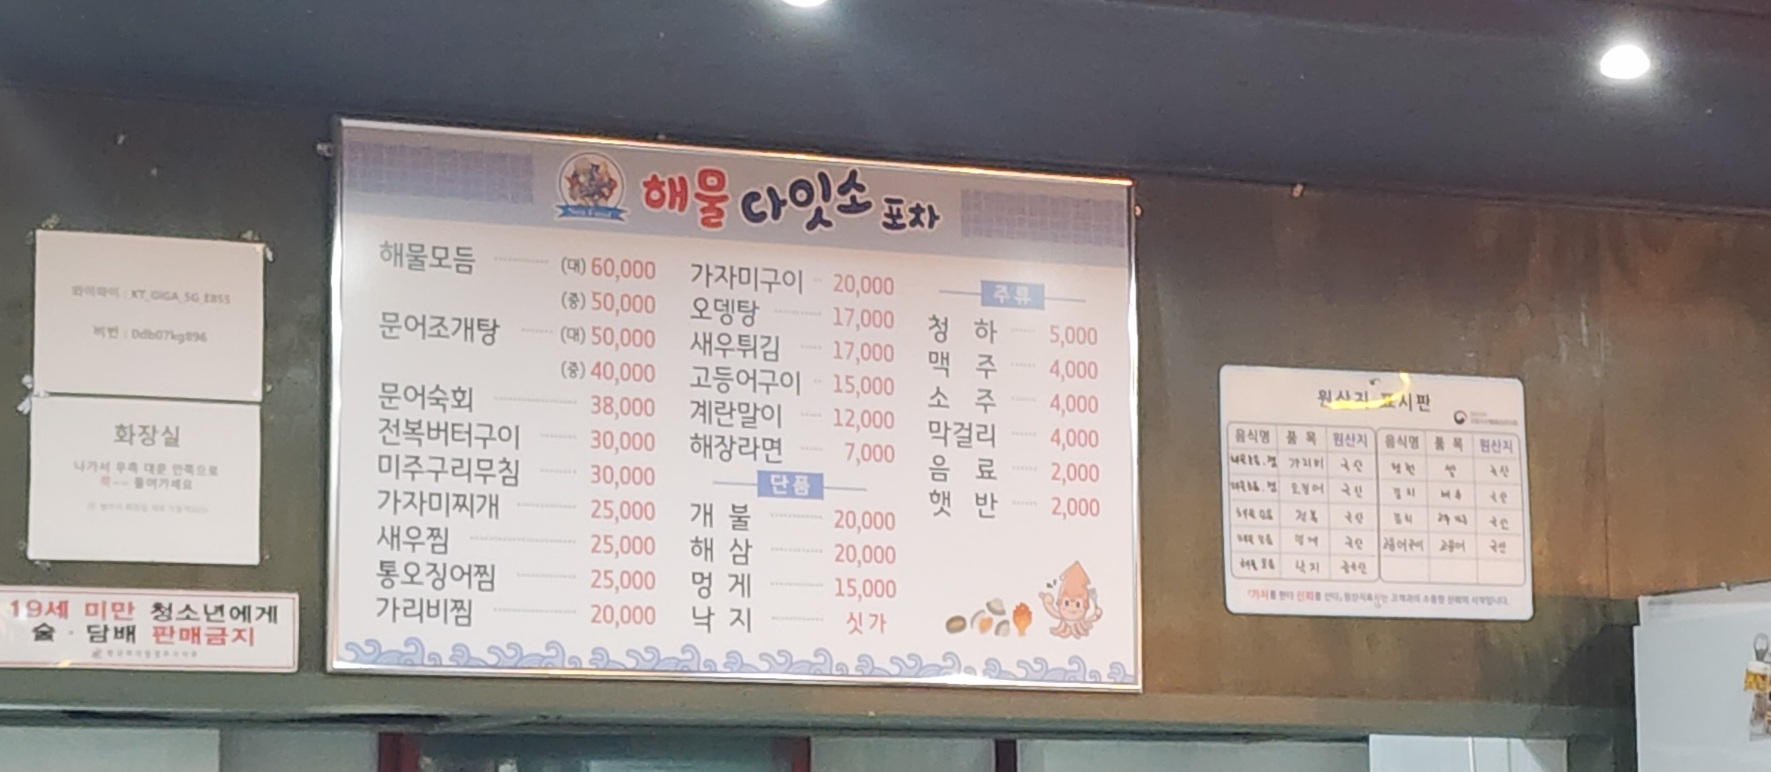 와이파이 : KT_GIGA_5G_E855
비번 : 0db07kg896
화장실
나가서 우측 대문 안쪽으로
쭉~~ 들어가세요
19세 미만 청소년에게
술 · 담배 판매금지
Sea Food
해물 다잇소 포차
해물모듬 (대) 60,000
(중) 50,000
문어조개탕 (대) 50,000
(중) 40,000
문어숙회 38,000
전복버터구이 30,000
미주구리무침 30,000
가자미찌개 25,000
새우찜 25,000
통오징어찜 25,000
가리비찜 20,000
가자미구이 20,000
오뎅탕 17,000
새우튀김 17,000
고등어구이 15,000
계란말이 12,000
해장라면 7,000
단품
개 불 20,000
해 삼 20,000
멍 게 15,000
낙 지 싯가
주류
청 하 5,000
맥 주 4,000
소 주 4,000
막걸리 4,000
음 료 2,000
햇 반 2,000
원산지 표시판
음식명 품 목 원산지 음식명 품 목 원산지
가리비 국산 쌀 국산
오징어 국산 김치 배추 국산
전복 국산 김치 국산
멍게 국산 고등어구이 고등어 국산
낙지 중국산